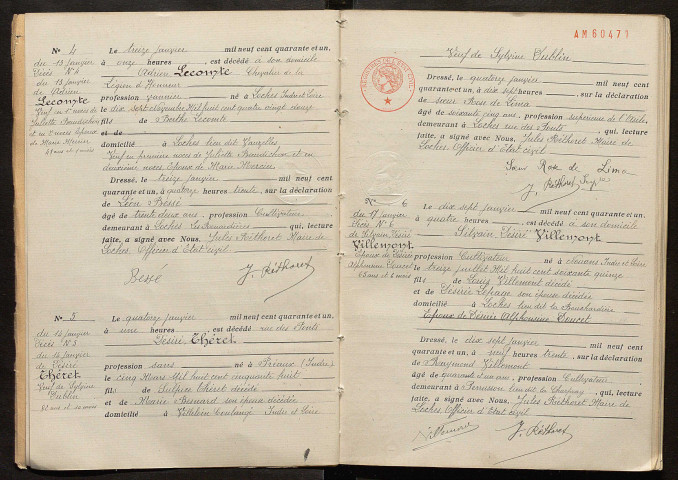 N° 4
du 13 janvier
Décès N° 4
du 13 janvier
de Adrien
Lecomte
Le treize janvier mil neuf cent quarante et un,
à onze heures , est décédé à son domicile
Adrien Lecomte Chevalier de la
Légion d'Honneur
profession né à Loches Indre et Loire
le dix sept Mil huit cent quatre vingt douze
fils de Berthe Lecomte
et de
domicilié à Loches lieu dit Vauzelles
Veuf en première noces de Juliette et en
deuxième noces Epoux de Marie Mercier
Dressé, le treize janvier mil neuf cent
quarante et un, à quatorze heures trente, sur la déclaration
de Léon Bessé
âgé de trente deux ans, profession Cultivateur
demeurant à Loches qui, lecture
faite, a signé avec Nous, Jules Réthoret Maire de
Loches Officier d'Etat civil
Bessé J. Réthoret
N° 5
du 14 janvier
du 14 janvier
de Désiré
Théret
Veuf de Sylvine
Dublin
Le quatorze janvier mil neuf cent quarante et un,
à une heures est décédé rue des Ponts
Désiré Théret
profession sans né à (Indre)
le cinq Mars Mil huit cent cinquante huit
fils de Sulpice Théret décédé
et de Marie Besnard son épouse décédée
domicilié à Indre et Loire
AM60471
Veuf de Sylvine Dublin
Dressé, le quatorze janvier mil neuf cent
quarante et un, à dix sept heures , sur la déclaration
de sœur Rose de Lima
âgé de soixante cinq ans, profession supérieure de l'Asile
demeurant à Loches rue des Ponts , qui, lecture
faite, a signé avec Nous, Jules Réthoret Maire de
Loches Officier d'Etat civil
Sœur Rose de Lima
J. Réthoret
N° 6
du 17 janvier
Décès N° 6
de Silvain, Désiré
Villemont
Epoux de Désirée
Alphonsine Doucet
65 ans et 6 mois
Le dix sept janvier mil neuf cent quarante et un,
à quatre heures , est décédé à son domicile
Silvain, Désiré Villemont
profession Cultivateur né à Indre et Loire
le treize juillet Mil huit cent soixante quinze
fils de Louis Villemont décédé
et de Désirée Lepage son épouse décédée
domicilié à Loches lieu dit la
Epoux de Désirée Alphonsine Doucet
Dressé, le dix sept janvier mil neuf cent
quarante et un, à neuf heures trente, sur la déclaration
de Raymond Villemont
âgé de quarante et un ans, profession Cultivateur
demeurant à Perrusson lieu dit , qui, lecture
faite, a signé avec Nous, Jules Réthoret Maire de
Loches Officier d'Etat civil
Villemont J. Réthoret